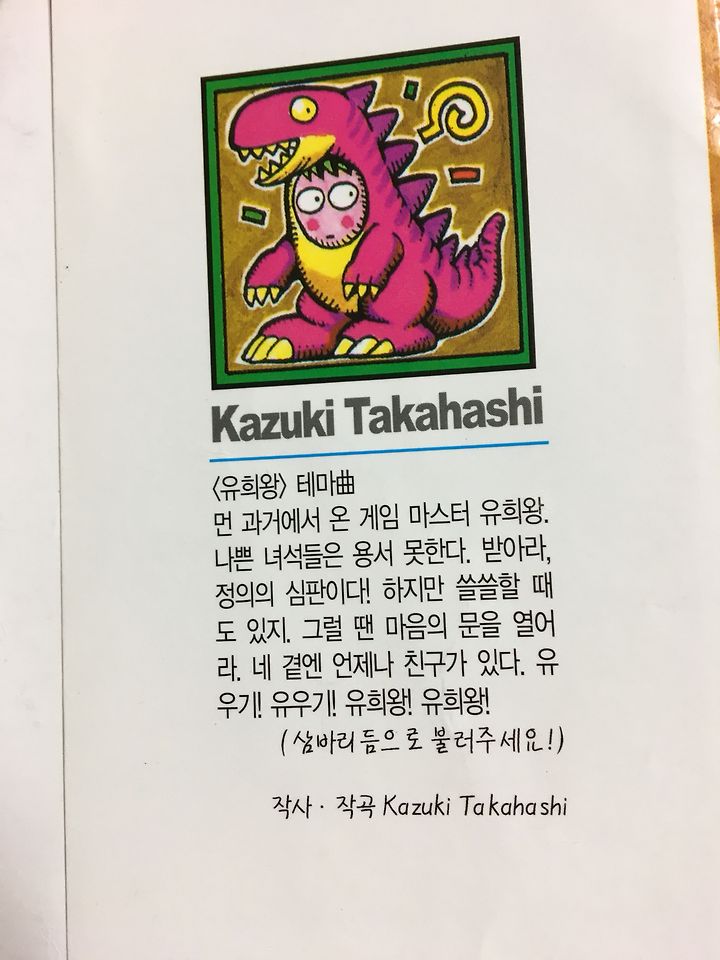 Kazuki Takahashi
〈유희왕〉 테마曲
먼 과거에서 온 게임 마스터 유희왕.
나쁜 녀석들은 용서 못한다. 받아라,
정의의 심판이다! 하지만 쓸쓸할 때
도 있지. 그럴 땐 마음의 문을 열어
라. 네 곁엔 언제나 친구가 있다. 유
우기! 유우기! 유희왕! 유희왕!
(삼바리듬으로 불러주세요!)
작사 · 작곡 Kazuki Takahashi